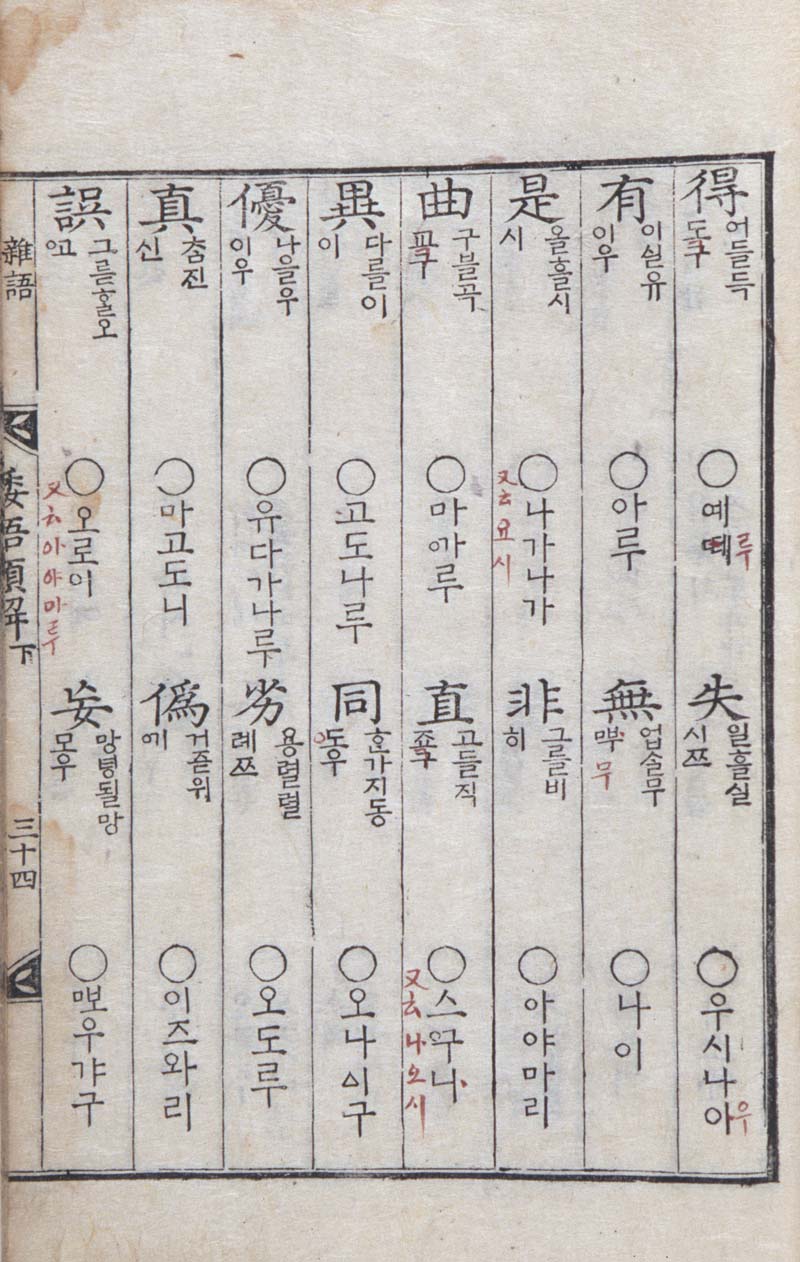 得 어들득 도구 ○예떼 루
失 일흘실 시쯔 ○우시나아 우
有 이실유 이우 ○아루
無 업슬무 무 ○나이
是 올흘시 시 ○나가나가
又云요시
非 그를비 히 ○아야마리
曲 구블곡 ○마까루
直 고들직 ○스구나
又云나오시
異 다를이 이 ○고도나루
同 ᄒᆞᆫ가지동 도우 ○오나ᅀᅵ구
優 나을우 이우 ○유다가나루
劣 용렬렬 례쯔 ○오도루
真 ᄎᆞᆷ진 신 ○마고도니
偽 거즛위 ○이즈와리
誤 그를ᄒᆞᆯ오 ○오로이
又云아야마루
妄 망녕될망 모우 ○ᄲᅩ우갸구
雜語
倭語類解下
三十四